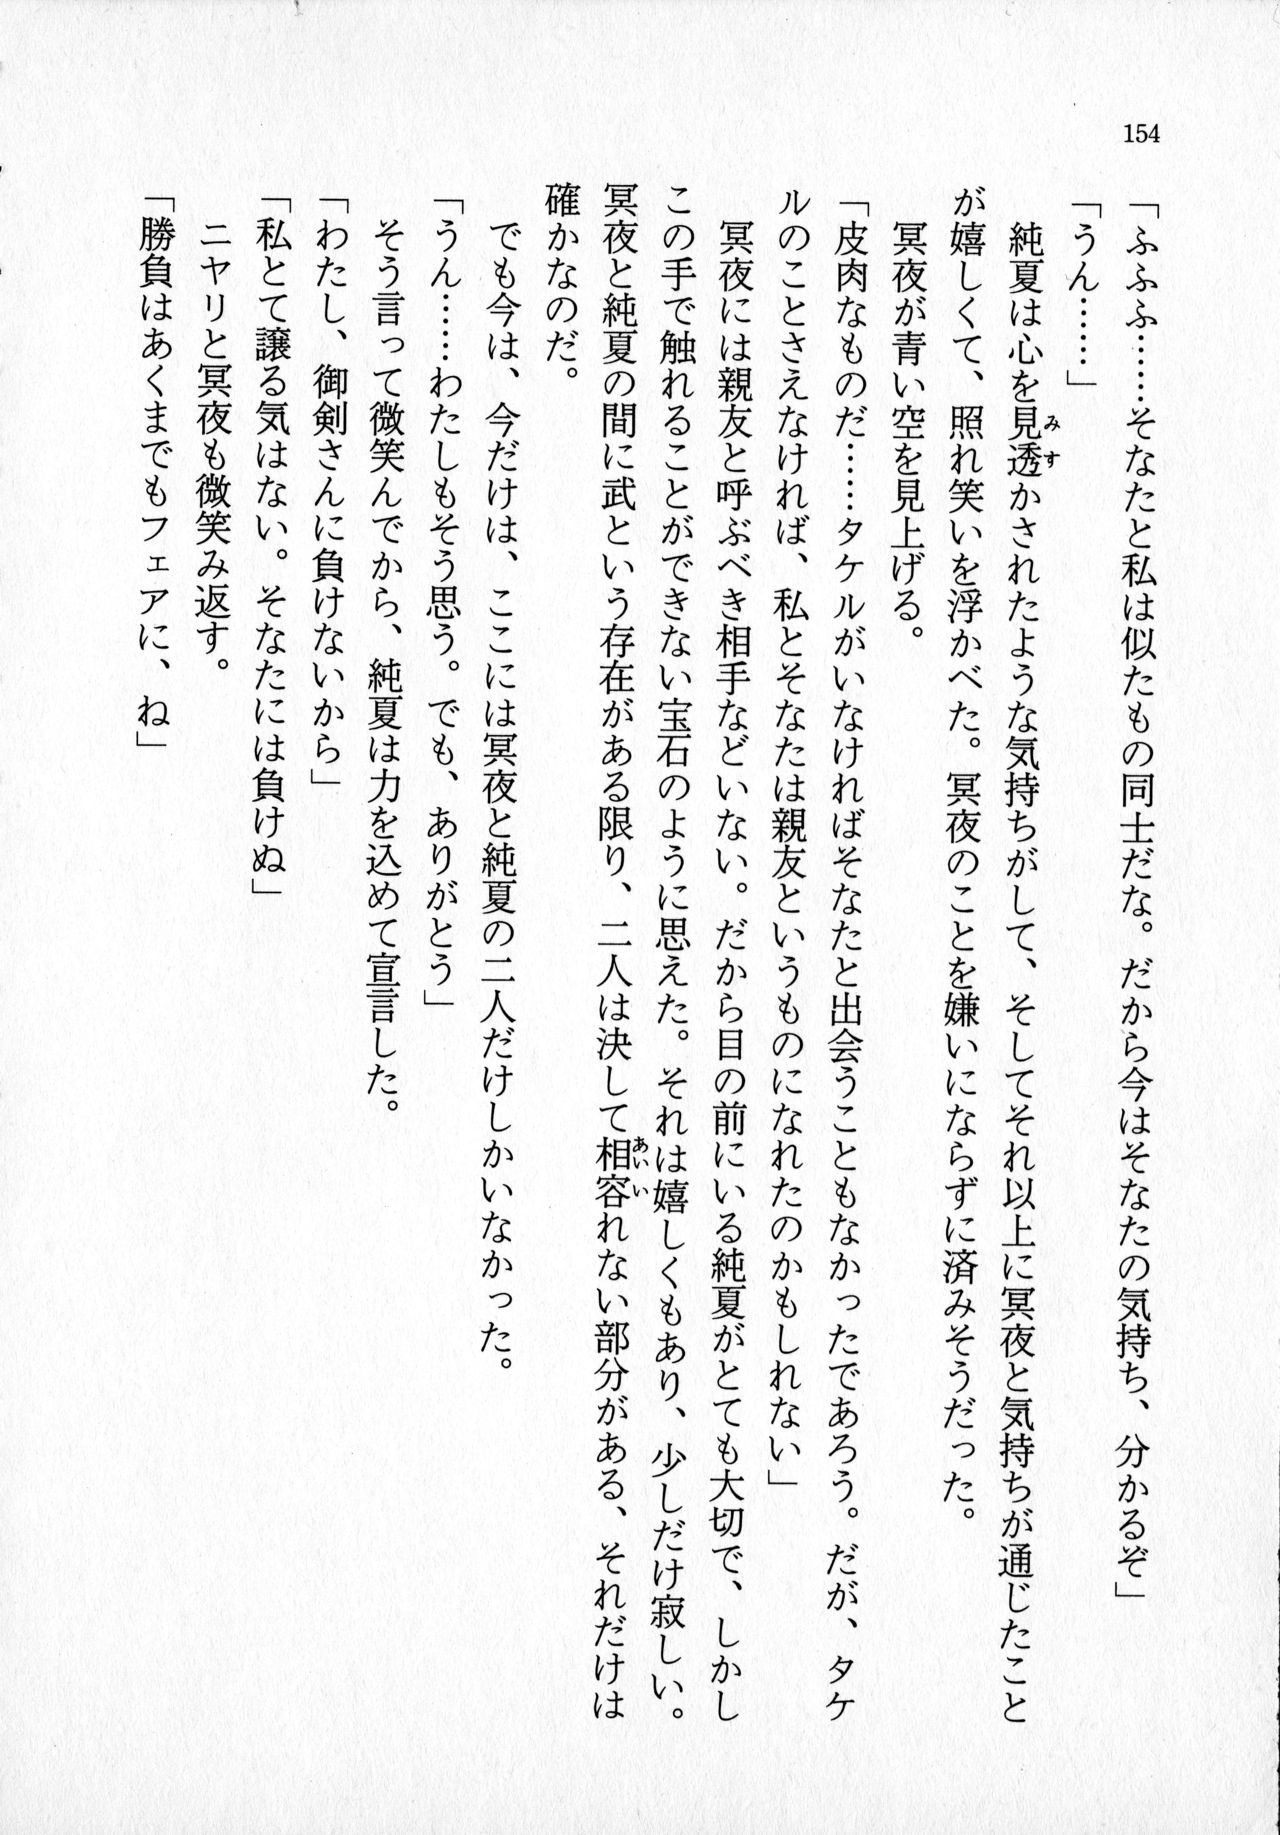 154
「ふふふ……そなたと私は似たもの同士だな。だから今はそなたの気持ち、分かるぞ」
「うん……」
　純夏は心を見透かされたような気持ちがして、そしてそれ以上に冥夜と気持ちが通じたこと
が嬉しくて、照れ笑いを浮かべた。冥夜のことを嫌いにならずに済みそうだった。
　冥夜が青い空を見上げる。
「皮肉なものだ……タケルがいなければそなたと出会うこともなかったであろう。だが、タケ
ルのことさえなければ、私とそなたは親友というものになれたのかもしれない」
　冥夜には親友と呼ぶべき相手などいない。だから目の前にいる純夏がとても大切で、しかし
この手で触れることができない宝石のように思えた。それは嬉しくもあり、少しだけ寂しい。
冥夜と純夏の間に武という存在がある限り、二人は決して相容れない部分がある、それだけは
確かなのだ。
　でも今は、今だけは、ここには冥夜と純夏の二人だけしかいなかった。
「うん……わたしもそう思う。でも、ありがとう」
　そう言って微笑んでから、純夏は力を込めて宣言した。
「わたし、御剣さんに負けないから」
「私とて譲る気はない。そなたには負けぬ」
　ニヤリと冥夜も微笑み返す。
「勝負はあくまでもフェアに、ね」